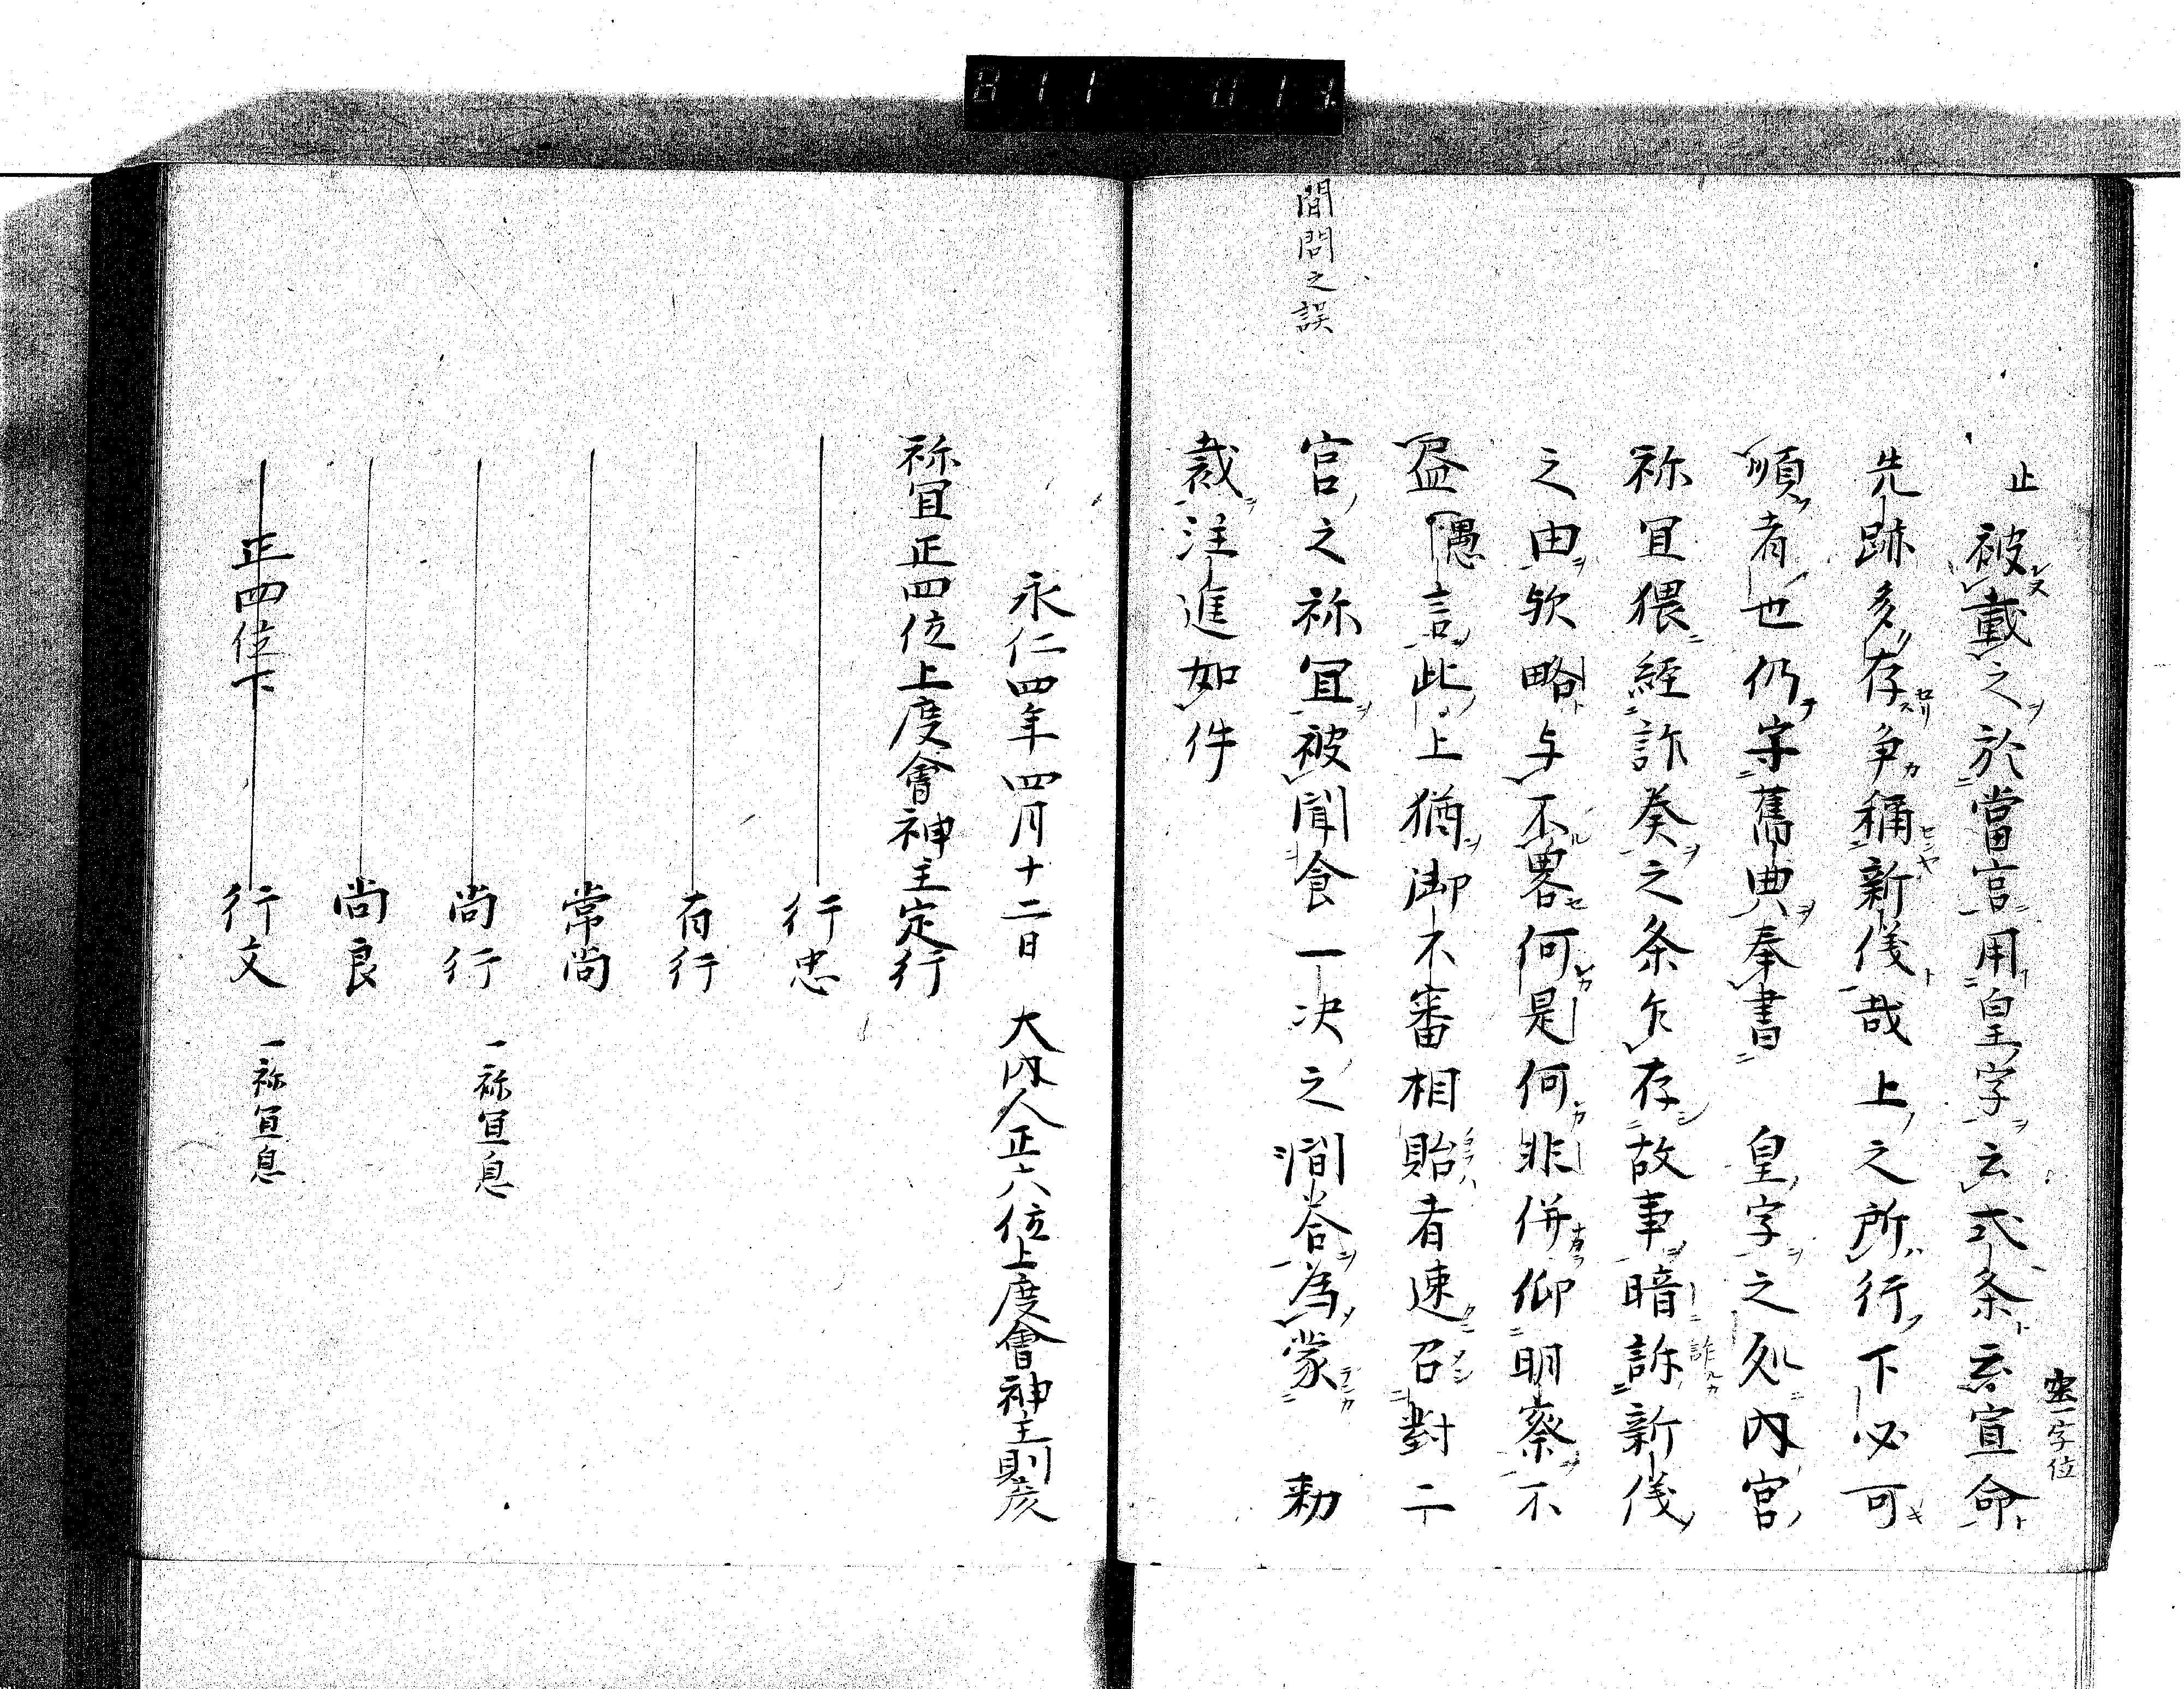 止 被載之於當宮用皇字云式条云宣命
空一字位
先跡多存争稱新儀哉上之所行下必可
順者也仍守舊典奉書 皇字之処内宮
祢冝猥經訴奏之条乍存故事暗訴新儀
之由欤略与不畧何是何非併仰明察不
盡愚言此上猶御不審相貽者速召對二
宮之祢冝被聞食一决之澗荅為蒙 勅
間問之誤
裁注進如件
永仁四年四月十二日 大内人正六位上度會神主則彦
祢冝正四位上度會神主定行
行忠
有行
常尚
尚行 一祢宜息
尚良
正四位下 行文 一祢宜息